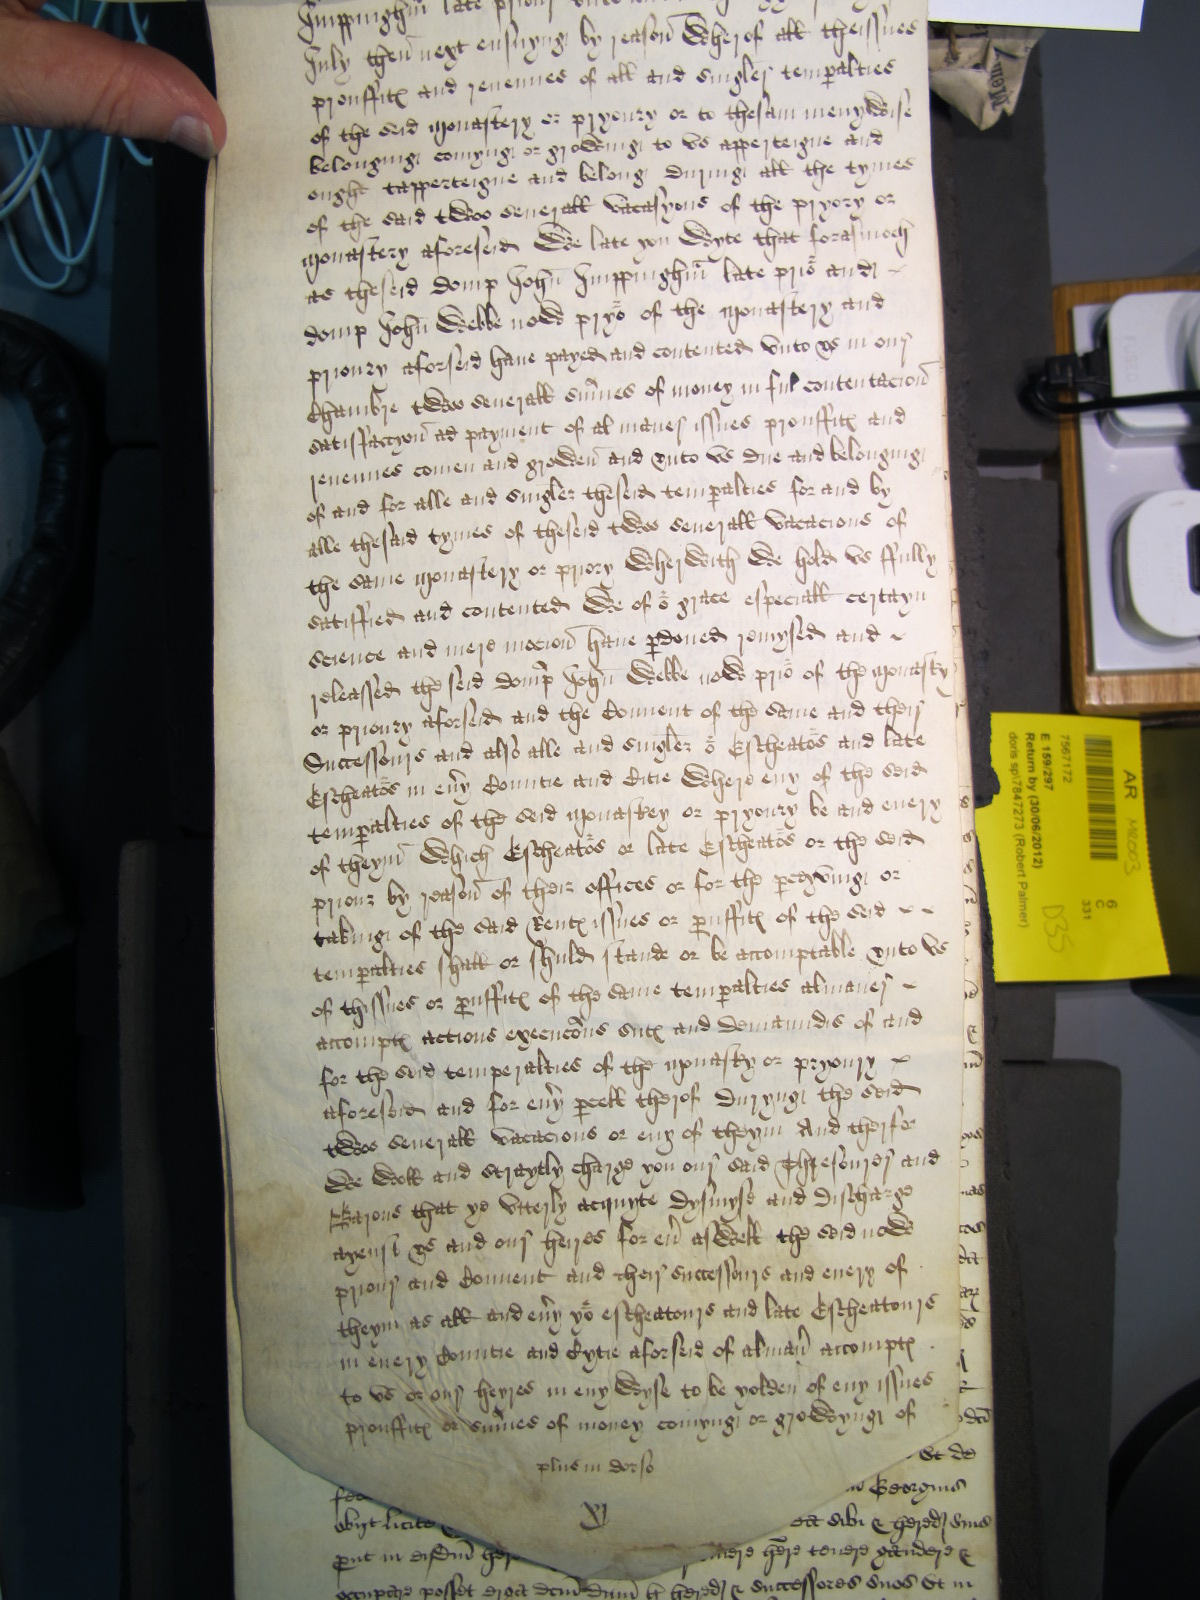 Impyngham late prio&#x27;
July then next ensuyng by reason Wherof all theissues
prouffitz and reuenues of all and singler temp&#x27;alties
of the seid monastery or pryoury or to thesam in enywise
belonging comyng or growing to vs apperteigne and
ought tapperteigne and belong during all the tymes
of the said twoo seuerall vacasyons of the pryory or
monastery aforeseid We late you wyte that forasmoch
as theseid domp John Impyngham late prio&#x27; and
domp John Webbe now pryo&#x27; of the monastery and
prioury aforseid haue payed and contented vnto vs in our
Chambre twoo seuerall sumes of money in ful contentacion
satisfaccyon ad payment of al maner issues prouffitz and
reuenues comen and growen and vnto vs due and belonging
of and for alle and singler theseid temp&#x27;alties for and by
alle thesaid tymes of theseid twoo seuerall vacacions of
the same monastery or priory wherwith we hold vs ffully
satisfied and contented We of o&#x27; grace especiall certayn
science and mere mocion haue p&#x27;doned remysed and
releassed the seid domp John Webbe now prio&#x27; of the monast&#x27;y
or prioury aforseid and the Couuent of the same and their
Successours and also alle and singler o&#x27; Escheato&#x27;s and late
Escheato&#x27;s in eu&#x27;y Countie and Citie where eny of the seid
temp&#x27;alties of the seid monastery or pryoury be and euery
of theym Which Escheato&#x27;s or late Escheato&#x27;s or the seid
priour by reason of their offices or for the p&#x27;ceyving or
taking of the said Rentz issues or p&#x27;uffitz of the seid
temp&#x27;alties shall or shuld stande or be accomptable vnto vs
of thissues or p&#x27;uffitz of the same temp&#x27;alties almaner
accomptz actions execuco&#x27;ns sutz and demaundis of and
for the seid temperalties of the monast&#x27;y or pryoury
aforeseid and for eu&#x27;y p&#x27;cell therof duryng the seid
twoo seuerall vacacions or eny of theym And therfor
We woll and straytly charge you our said Thresourer and
Barons that ye vtterly acquyte dysmyse and discharge
ayenst vs and our heires for eu&#x27; aswell the seid now
priour and Couuent and their successours and euery of
theym as all and eu&#x27;y yo&#x27; escheatours and late Escheatours
in euery Countie and Cytie aforseid of alman&#x27; accomptz
to vs or our heyres in eny wyse to be yolden of eny issues
prouffitz or sumes of money comyng or growyng of
plus in dorso
XI
Georgius
obijt licite
sibi &amp; hered suis
put in eisdm
tenere gaudere &amp;
occupare posset
successores suos Et in
AR
6
C
331
7567172
E 159/297
Return by (30/06/2012)
doris sp\7847273 (Robert Palmer)
M2003
D35
FUSED